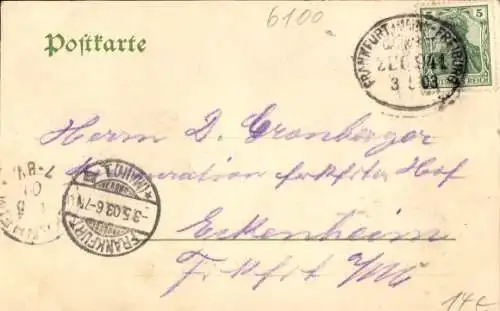 6100
Postkarte
5
FRANKFURT (MAIN)-FREIBURG
ZUG 941
3 5 03
REICH
Herrn D. Cronberger
Restauration Frkfrter Hof
Eckenheim
Frkfrt a/M
FRANKFURT (MAIN) 1
-3.5.03.6-7N.
7-8V.
14€